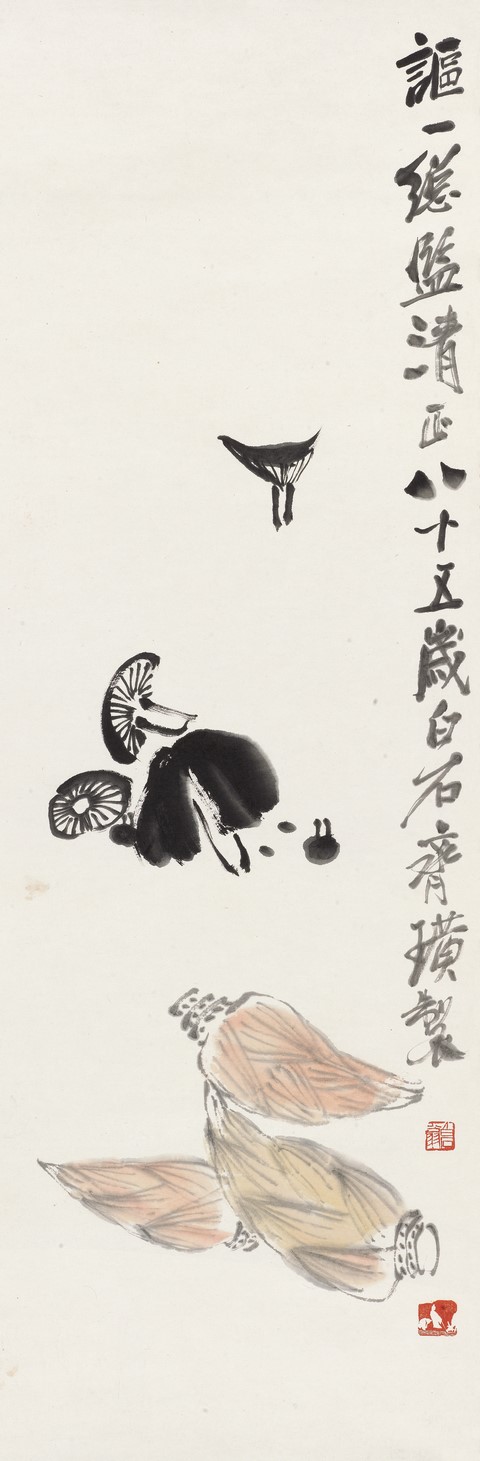 謳一總監清正八十五歲白石齊璜製
白石翁